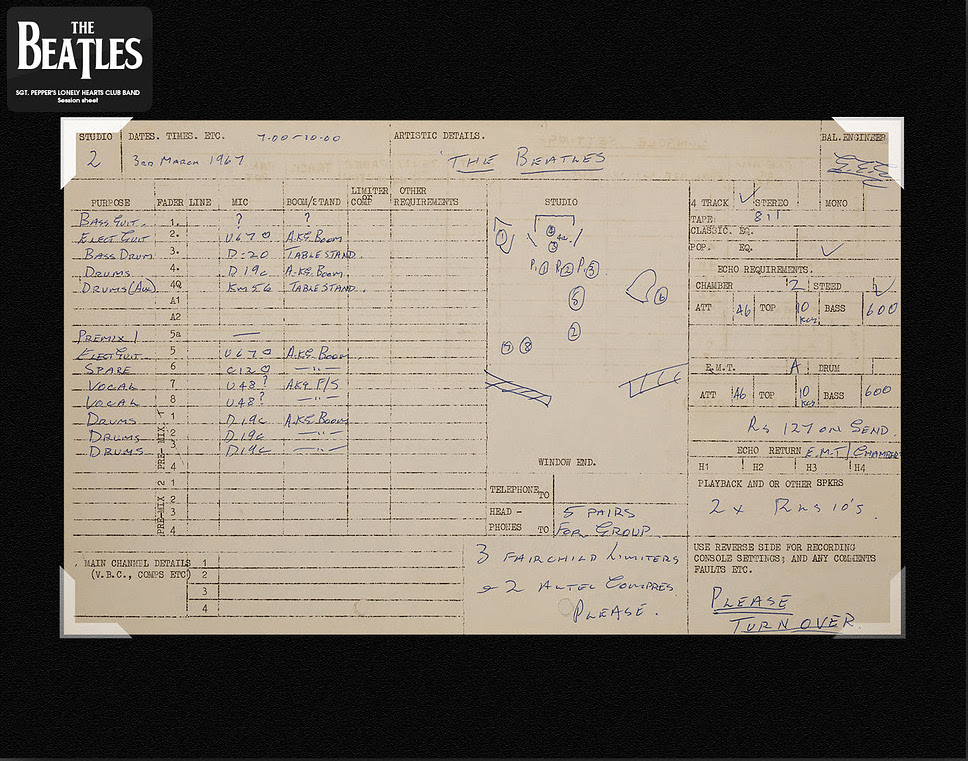 THE
BEATLES
SGT. PEPPER'S LONELY HEARTS CLUB BAND
Session sheet
STUDIO DATES. TIMES. ETC. 7.00-10.00 ARTISTIC DETAILS. BAL.ENGINEER
2 3RD MARCH 1967 "THE BEATLES"
PURPOSE FADER LINE MIC BOOM/STAND LIMITER OR COMP OTHER REQUIREMENTS STUDIO
BASS GUIT. 1. ? ?
ELECT GUIT 2. U67 A.KG BOOM
BASS DRUM 3. D.20 TABLE STAND
DRUMS 4. D19c A.KG. BOOM
DRUMS (AUX) 4Q KM56 TABLE STAND
A1
A2
PREMIX 1 5a —
ELECT GUIT 5 U67 A.KG BOOM
SPARE 6 C12 — " —
VOCAL 7 U48? AKG F/S
VOCAL 8 U48? — " —
DRUMS 1 D19c A.KG BOOM
DRUMS 2 D19c — " —
DRUMS 3 D19c — " —
4
PRE-MIX
PRE-MIX 2 1
2
3
4
MAIN CHANNEL DETAILS 1
(V.B.C., COMPS ETC) 2
3
4
1 4 3
P1 1 P2 2 P3 3
5 6
7
9 8
WINDOW END.
TELEPHONE TO
HEAD- 5 PAIRS
PHONES TO FOR GROUP
3 FAIRCHILD LIMITERS
& 2 ALTEC COMPRES
PLEASE.
4 TRACK ✓ STEREO MONO
TAPE: 811
CLASSIC. EQ.
POP. EQ. ✓
ECHO REQUIREMENTS.
CHAMBER 2 STEED ✓
ATT 46 TOP 10 Kcs BASS 600
E.M.T. A DRUM
ATT 46 TOP 10 Kcs BASS 600
RS 127 ON SEND
ECHO RETURN E.M.T/CHAMBER
H1 H2 H3 H4
PLAYBACK AND OR OTHER SPKRS
2 x RLS 10's
USE REVERSE SIDE FOR RECORDING
CONSOLE SETTINGS; AND ANY COMMENTS
FAULTS ETC.
PLEASE
TURN OVER.